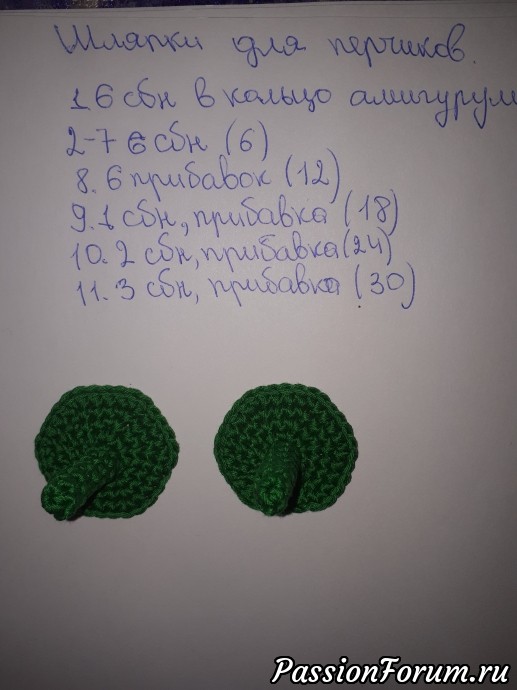 Шляпки для перчиков.
1 6 сбн в кольцо амигурум
2-7 6 сбн (6)
8. 6 прибавок (12)
9. 1 сбн, прибавка (18)
10. 2 сбн, прибавка (24)
11. 3 сбн, прибавка (30)
PassionForum.ru